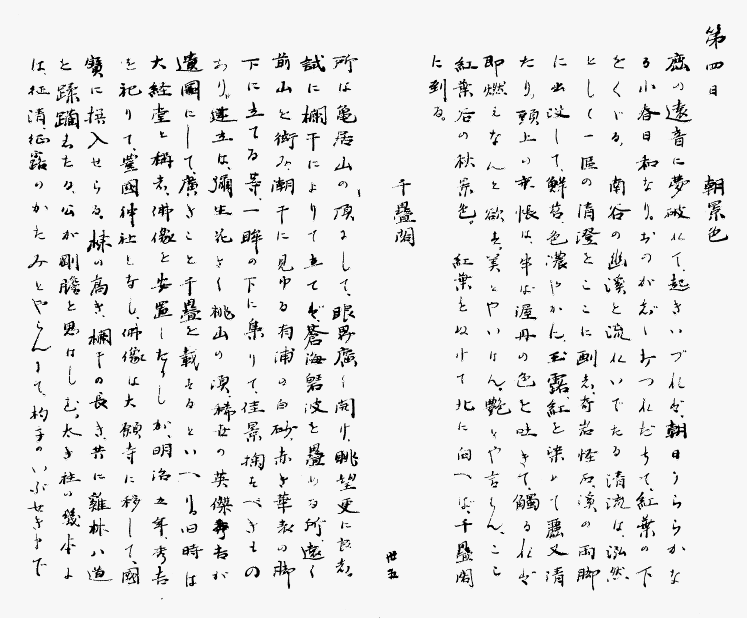 第四日　朝景色
鹿の遠音に夢破れて、起きいづれば、朝日うららかな
る小春日和なり。おのがじしおつれだちて、紅葉の下
をくぐる。南谷の幽溪と流れいでたる清流は、泓然
として一區の清澄をここに劃し、奇岩怪石、溪の兩脚
に出没して、鮮苔色濃やかに、玉露紅と染めて麗又清
たり。頭上の来帳は、半ば渥丹の色と吐きて、觸るれば
即燃えなんと欲す。美とやいはん、艶とや言はん、ここ
紅葉谷の秋景色。紅葉をぬけて北に向へば、千疊閣
に到る。
千疊閣
所は亀居山の頂にして、眼界廣く開け、眺望更に佳し。
試に欄干によりて立てば、蒼海碧波を疊める所、遠く
前山を銜み、潮干に見ゆる有浦の白砂、赤き華表の脚
下に立てる等、一眸の下に集りて、佳景掬すべきもの
あり。建立は、彌生花さく桃山の頃、稀世の英傑秀吉が
遺圖にして、廣きこと千疊を載するといへり。旧時は
大経堂と稱し、佛像を安置したりしが、明治五年、秀吉
を祀りて、豊國神社となし、佛像は大願寺に移して、國
寶に指入せらる。棟の高き、欄干の長き、共に雞林八道
と蹂躪したる、公が剛膽を思はしむ。太き柱の幾本よ
は、征清、征露のかたみとやらんにて、杓子のいぶせきまで
廿五